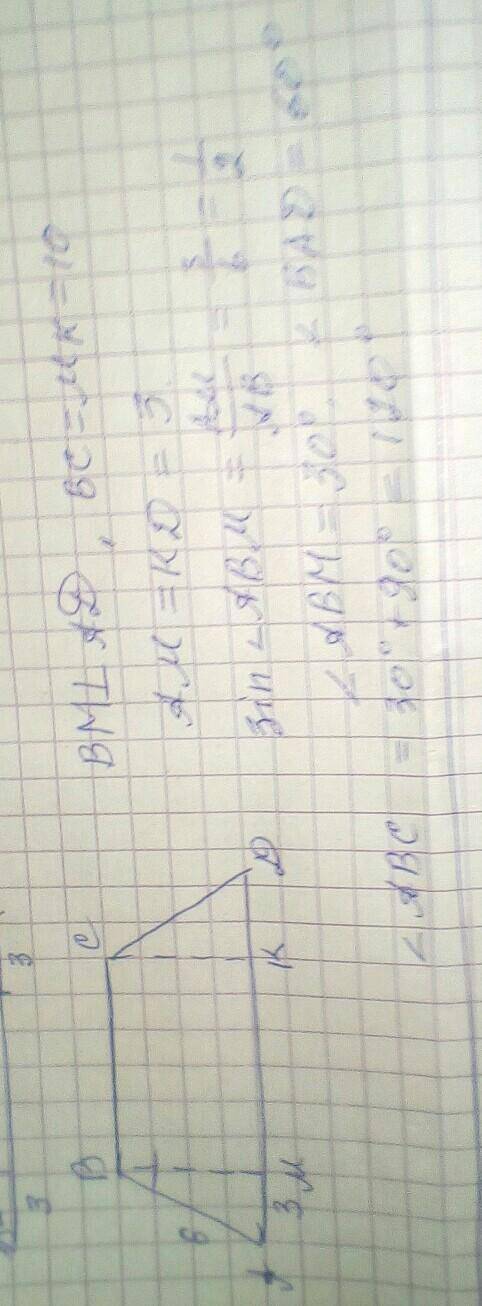 3 3
B C
6
A 3 M K D
BM⊥AD, BC=MK=10
AM=KD=3
sin∠ABM=AM/AB=3/6=1/2
∠ABM=30°. ∠BAD=60°
∠ABC=30°+90°=120°